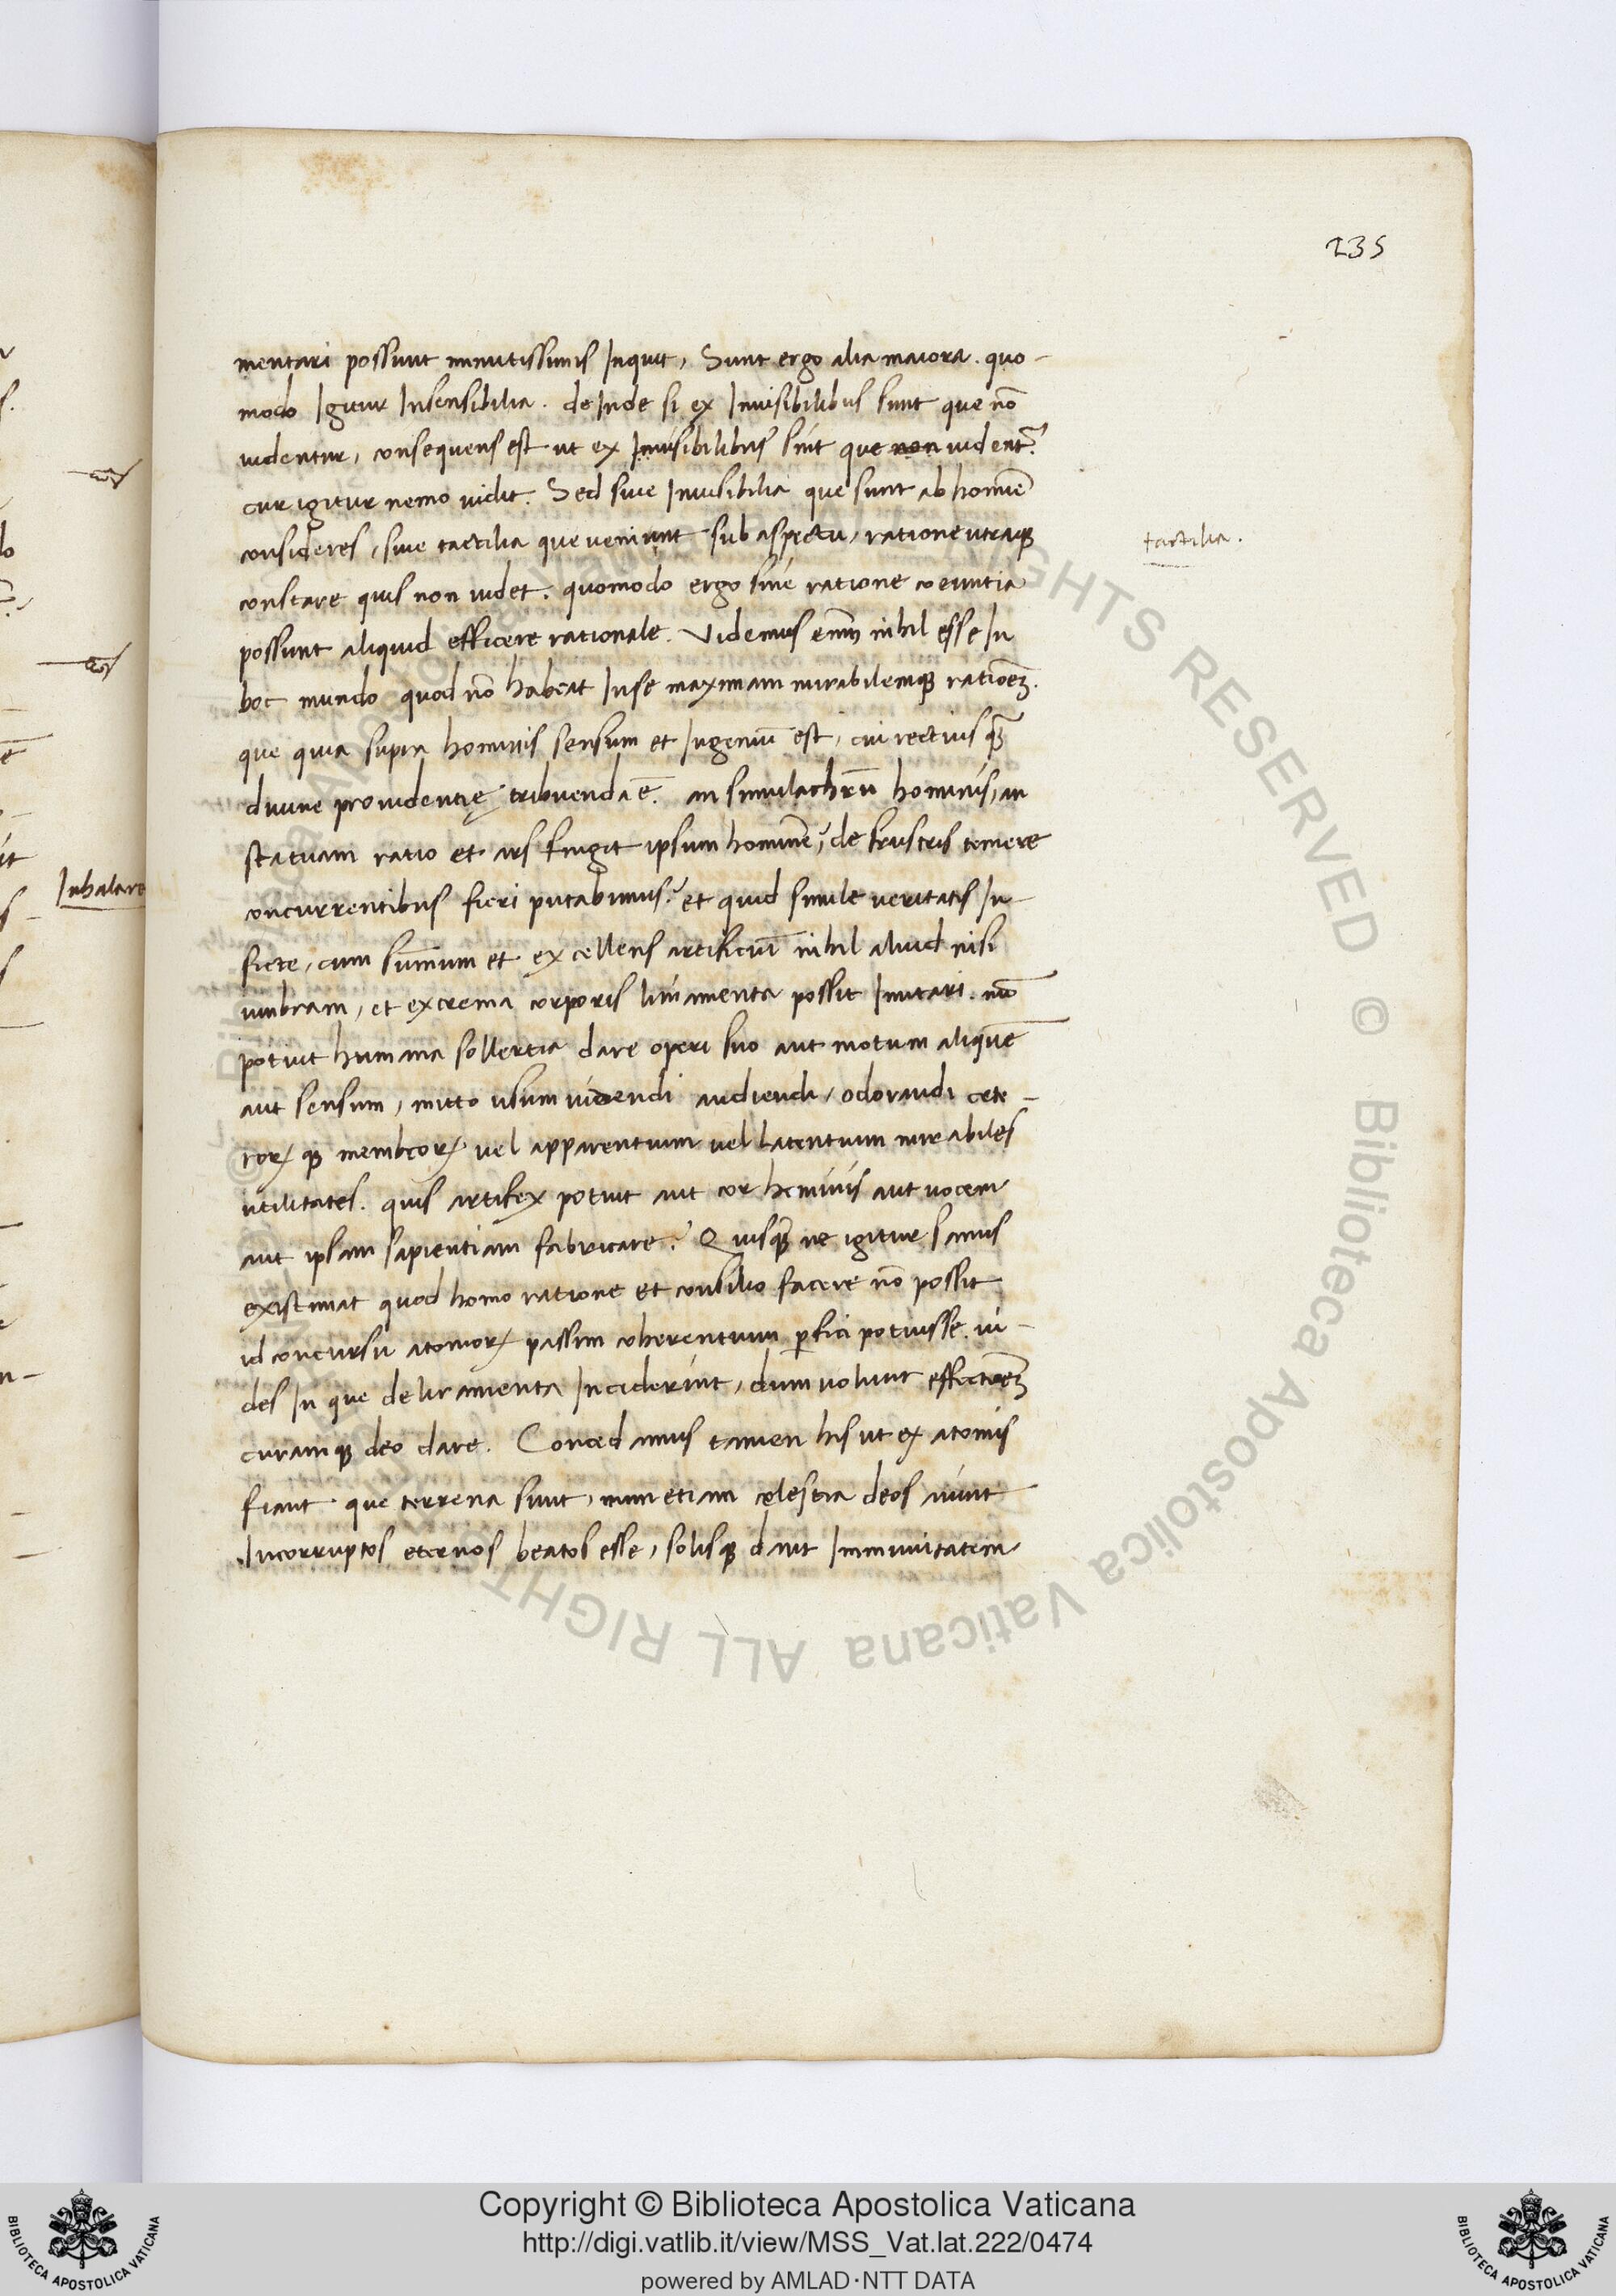 235
mentari possunt minutissimis Inquit, Sunt ergo alia maiora. quo-
modo Igitur Insensibilia. deInde si ex Inuisibilibus sunt que nō
uidentur, consequens est ut ex Inuisibilibus sint que non uident᷑?
cur igitur nemo uidit. Sed siue Inuisibilia que sunt ab homīe
consideres, siue tactilia que veniunt sub aspectu, ratione utraqꝫ
constare quis non uidet. quomodo ergo sine ratione coeuntia
possunt aliquid efficere rationale. Videmus enim nihil esse In
hoc mundo quod nō habeat Inse maximam mirabilemqꝫ rationēꝫ.
que quia supra hominis sensum et Ingeniū est, cui rectius qꝫ̄
diuine prouidentię tribuenda ē. an simulachrū hominis, an
statuam ratio et ars fingit ipsum hominē, de frustris temere
concurrentibus fieri putabimus? et quid simile veritatis In-
ficte, cum sūmum et excellens artificiū nihil aliud nisi
umbram, et extrema corporis liniamenta possit Imitari. nū
potuit humana sollertia dare operi suo aut motum aliquē
aut sensum, mitto usum uidendi audiendi, odorandi cete-
roꝝ qꝫ membroꝝ vel apparentium vel latentium mirabiles
utilitates. quis artifex potuit aut cor hominis aut uocem
aut ipsam sapientiam fabricare? Quisqꝫ̄ ne igitur sanus
existimat quod homo ratione et consilio facere nō possit
id concursu atomoꝝ passim coherentium ꝑfici potuisse. ui-
des In que deliramenta Inciderint, dum nolunt effectionēꝫ
curamqꝫ deo dare. Concedamus tamen his ut ex atomis
fiant que terrena sunt, num etiam cęlestia deos aiunt
Incorruptos eternos beatos esse, solisqꝫ dant Immunitatem
tactilia.
Inhalare
© Biblioteca Apostolica Vaticana ALL RIGHTS RESERVED
Copyright © Biblioteca Apostolica Vaticana
http://digi.vatlib.it/view/MSS_Vat.lat.222/0474
powered by AMLAD·NTT DATA
BIBLIOTECA APOSTOLICA VATICANA
BIBLIOTECA APOSTOLICA VATICANA